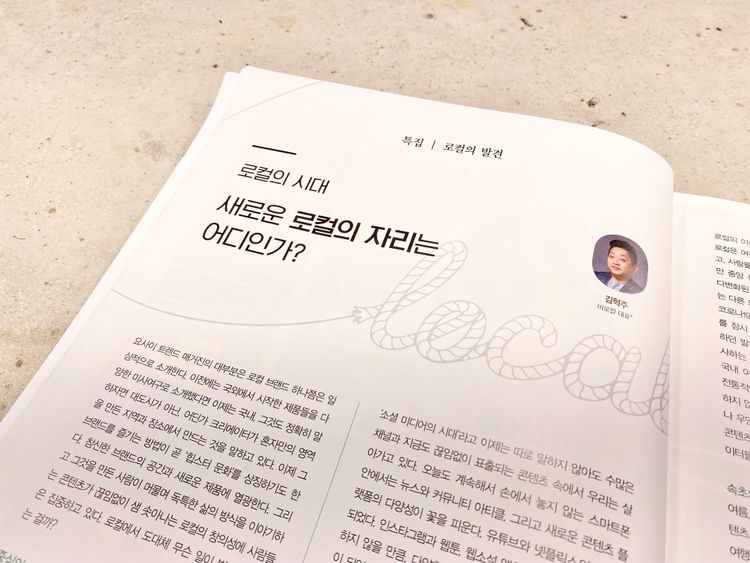 특집 | 로컬의 발견
로컬의 시대
새로운 로컬의 자리는
어디인가?
김혁주
비로컬 대표*
local
요사이 트렌드 매거진의 대부분은 로컬 브랜드 하나쯤은 일
상적으로 소개한다. 이전에는 국외에서 시작한 제품들을 다
양한 미사여구로 소개했다면 이제는 국내, 그것도 정확히 말
하자면 대도시가 아닌, 어딘가 크리에이터가 혼자만의 영역
을 만든 지역과 장소에서 만드는 것을 말하고 있다. 이제 그
브랜드를 즐기는 방법이 곧 '힙스터 문화'를 상징하기도 한
다. 참신한 브랜드의 공간과 새로운 제품에 열광한다. 그리
고 그것을 만든 사람이 머물며 독특한 삶의 방식을 이야기하
는 콘텐츠가 끊임없이 샘 솟아나는 로컬의 창의성에 사람들
은 집중하고 있다. 로컬에서 도대체 무슨 일이
는 걸까?
소셜 미디어의 시대'라고 이제는 따로 말하지 않아도 수많은
채널과 지금도 끊임없이 표출되는 콘텐츠 속에서 우리는 살
아가고 있다. 오늘도 계속해서 손에서 놓지 않는 스마트폰
안에서는 뉴스와 커뮤니티 아티클, 그리고 새로운 콘텐츠 플
랫폼의 다양성이 꽃을 피운다. 유튜브와 넷플릭스
되었다. 인스타그램과 웹툰, 웹소설
하지 않을 만큼, 다양
이 되
로컬의
로컬은 여
고, 사람들
만 중앙
다변화된
는 다른
코로나
를 잠시
하던
사하는
국내 여
전통적
하지 않
나 우
콘텐츠
이터들
속초
여름,
텐츠
여행